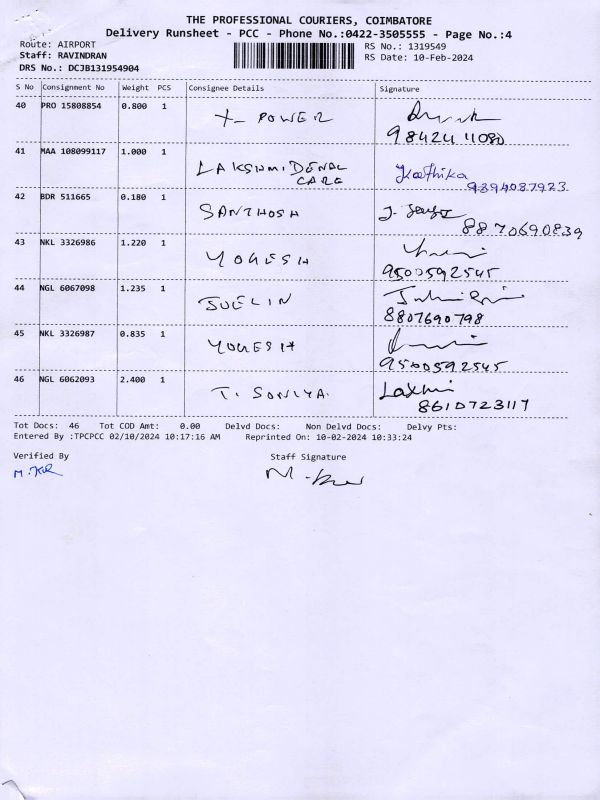 THE PROFESSIONAL COURIERS, COIMBATORE
Delivery Runsheet - PCC - Phone No.:0422-3505555 - Page No.:4
Route: AIRPORT
Staff: RAVINDRAN
DRS No.: DCJB131954904
RS No.: 1319549
RS Date: 10-Feb-2024
S No Consignment No Weight PCS Consignee Details Signature
40 PRO 15808854 0.800 1 X- POWER
98424 11080
41 MAA 108099117 1.000 1 LAKSHMI DENAL CARE Karthika
9894087923
42 BDR 511665 0.180 1 SANTHOSH
8870690839
43 NKL 3326986 1.220 1 YOGESH
9500592545
44 NGL 6067098 1.235 1 JUELIN
8807690798
45 NKL 3326987 0.835 1 YOGESH
9500592545
46 NGL 6062093 2.400 1 T. SONIYA. Laxmi
8610723117
Tot Docs: 46 Tot COD Amt: 0.00 Delvd Docs: Non Delvd Docs: Delvy Pts:
Entered By :TPCPCC 02/10/2024 10:17:16 AM Reprinted On: 10-02-2024 10:33:24
Verified By Staff Signature